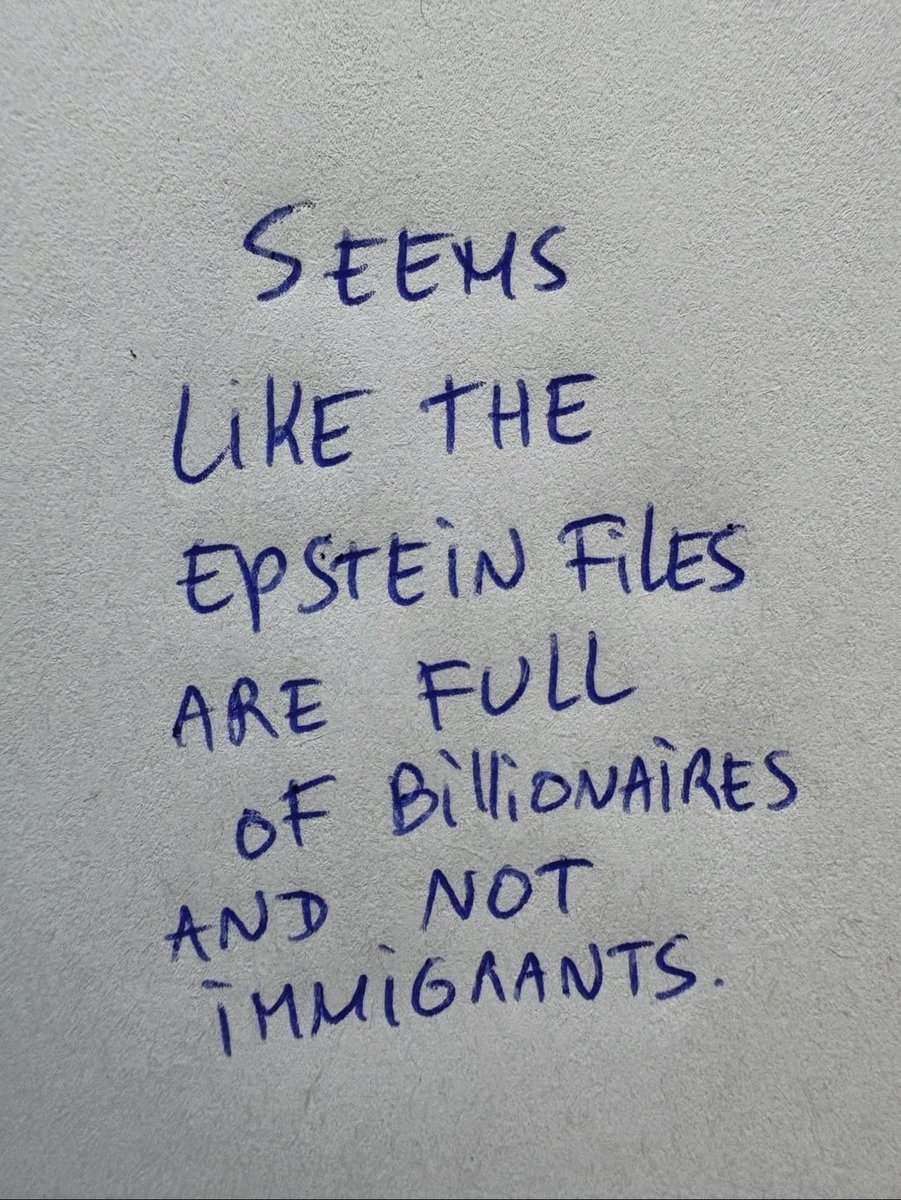 SEEMS
LiKE THE
EpSTEiN FilES
ARE FULL
OF BillioNAiRES
AND NOT
iMMiGRANTS.